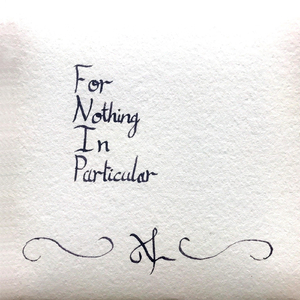 For
Nothing
In
Particular